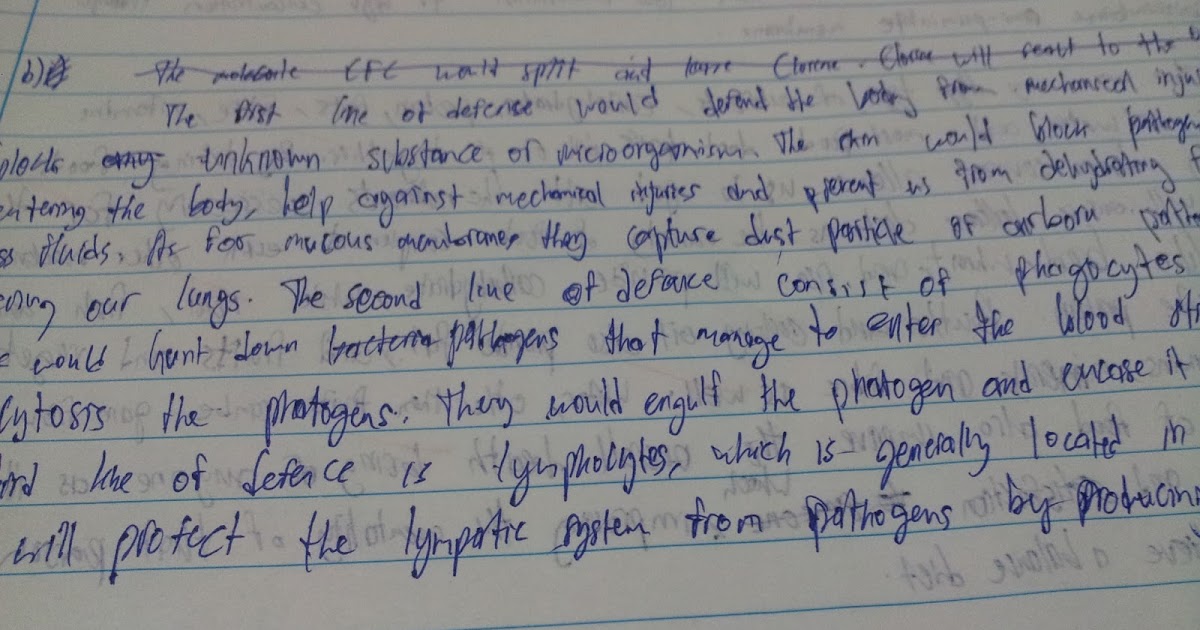 b) The molecule CFC would split and leave Clorene. Clorene will react to the
The first line of defence would defend the body from mechanical inju
blocks unknown substance or microorganism. The skin would block pathogen
entering the body, help against mechanical injuries and prevent us from dehydrating
ss fluids. As for mucous membranes, they capture dust particle of
our lungs. The second line of defence consist of phagocytes
would hunt down bacteria pathogens that manage to enter the blood
cytosis the phatogens. They would engulf the phatogen and encase it
ird line of defence is lympholytes, which is generally located in
will protect the lympatic system from pathogens by producin